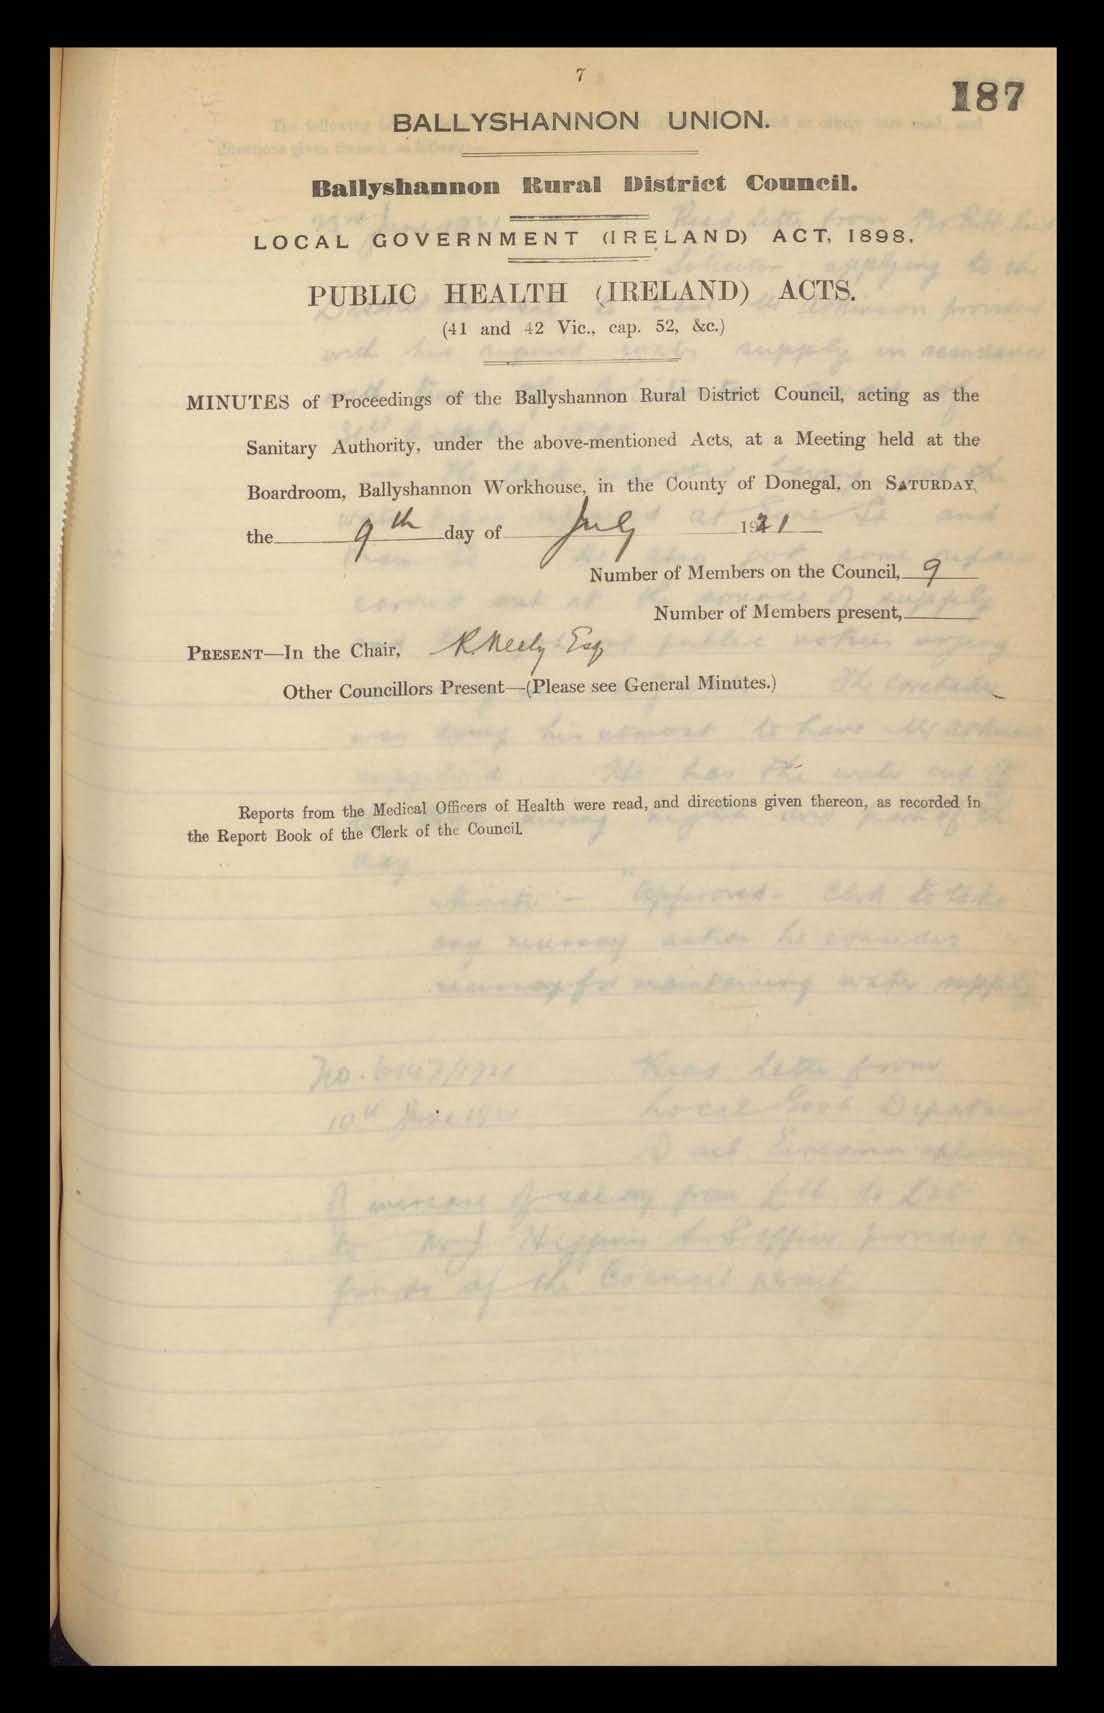 7
187
BALLYSHANNON UNION.
Ballyshannon Rural District Council.
LOCAL GOVERNMENT (IRELAND) ACT, 1898.
PUBLIC HEALTH (IRELAND) ACTS.
(41 and 42 Vic., cap. 52, &c.)
MINUTES of Proceedings of the Ballyshannon Rural District Council, acting as the
Sanitary Authority, under the above-mentioned Acts, at a Meeting held at the
Boardroom, Ballyshannon Workhouse, in the County of Donegal, on SATURDAY,
the 9th day of July 1921
Number of Members on the Council, 9
Number of Members present,
PRESENT—In the Chair, R. Neely Esq
Other Councillors Present—(Please see General Minutes.)
Reports from the Medical Officers of Health were read, and directions given thereon, as recorded in
the Report Book of the Clerk of the Council.